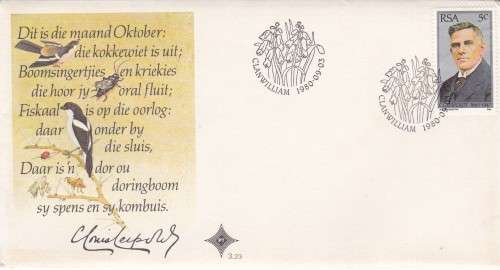 Dit is die maand Oktober:
die kokkewiet is uit;
Boomsingertjies en kriekies
die hoor jy oral fluit;
Fiskaal is op die oorlog:
daar onder by
die sluis,
Daar is 'n dor ou
doringboom
sy spens en sy kombuis.
3.23
CLANWILLIAM 1980·09·03
RSA 5c
CLANWILLIAM 1980·09